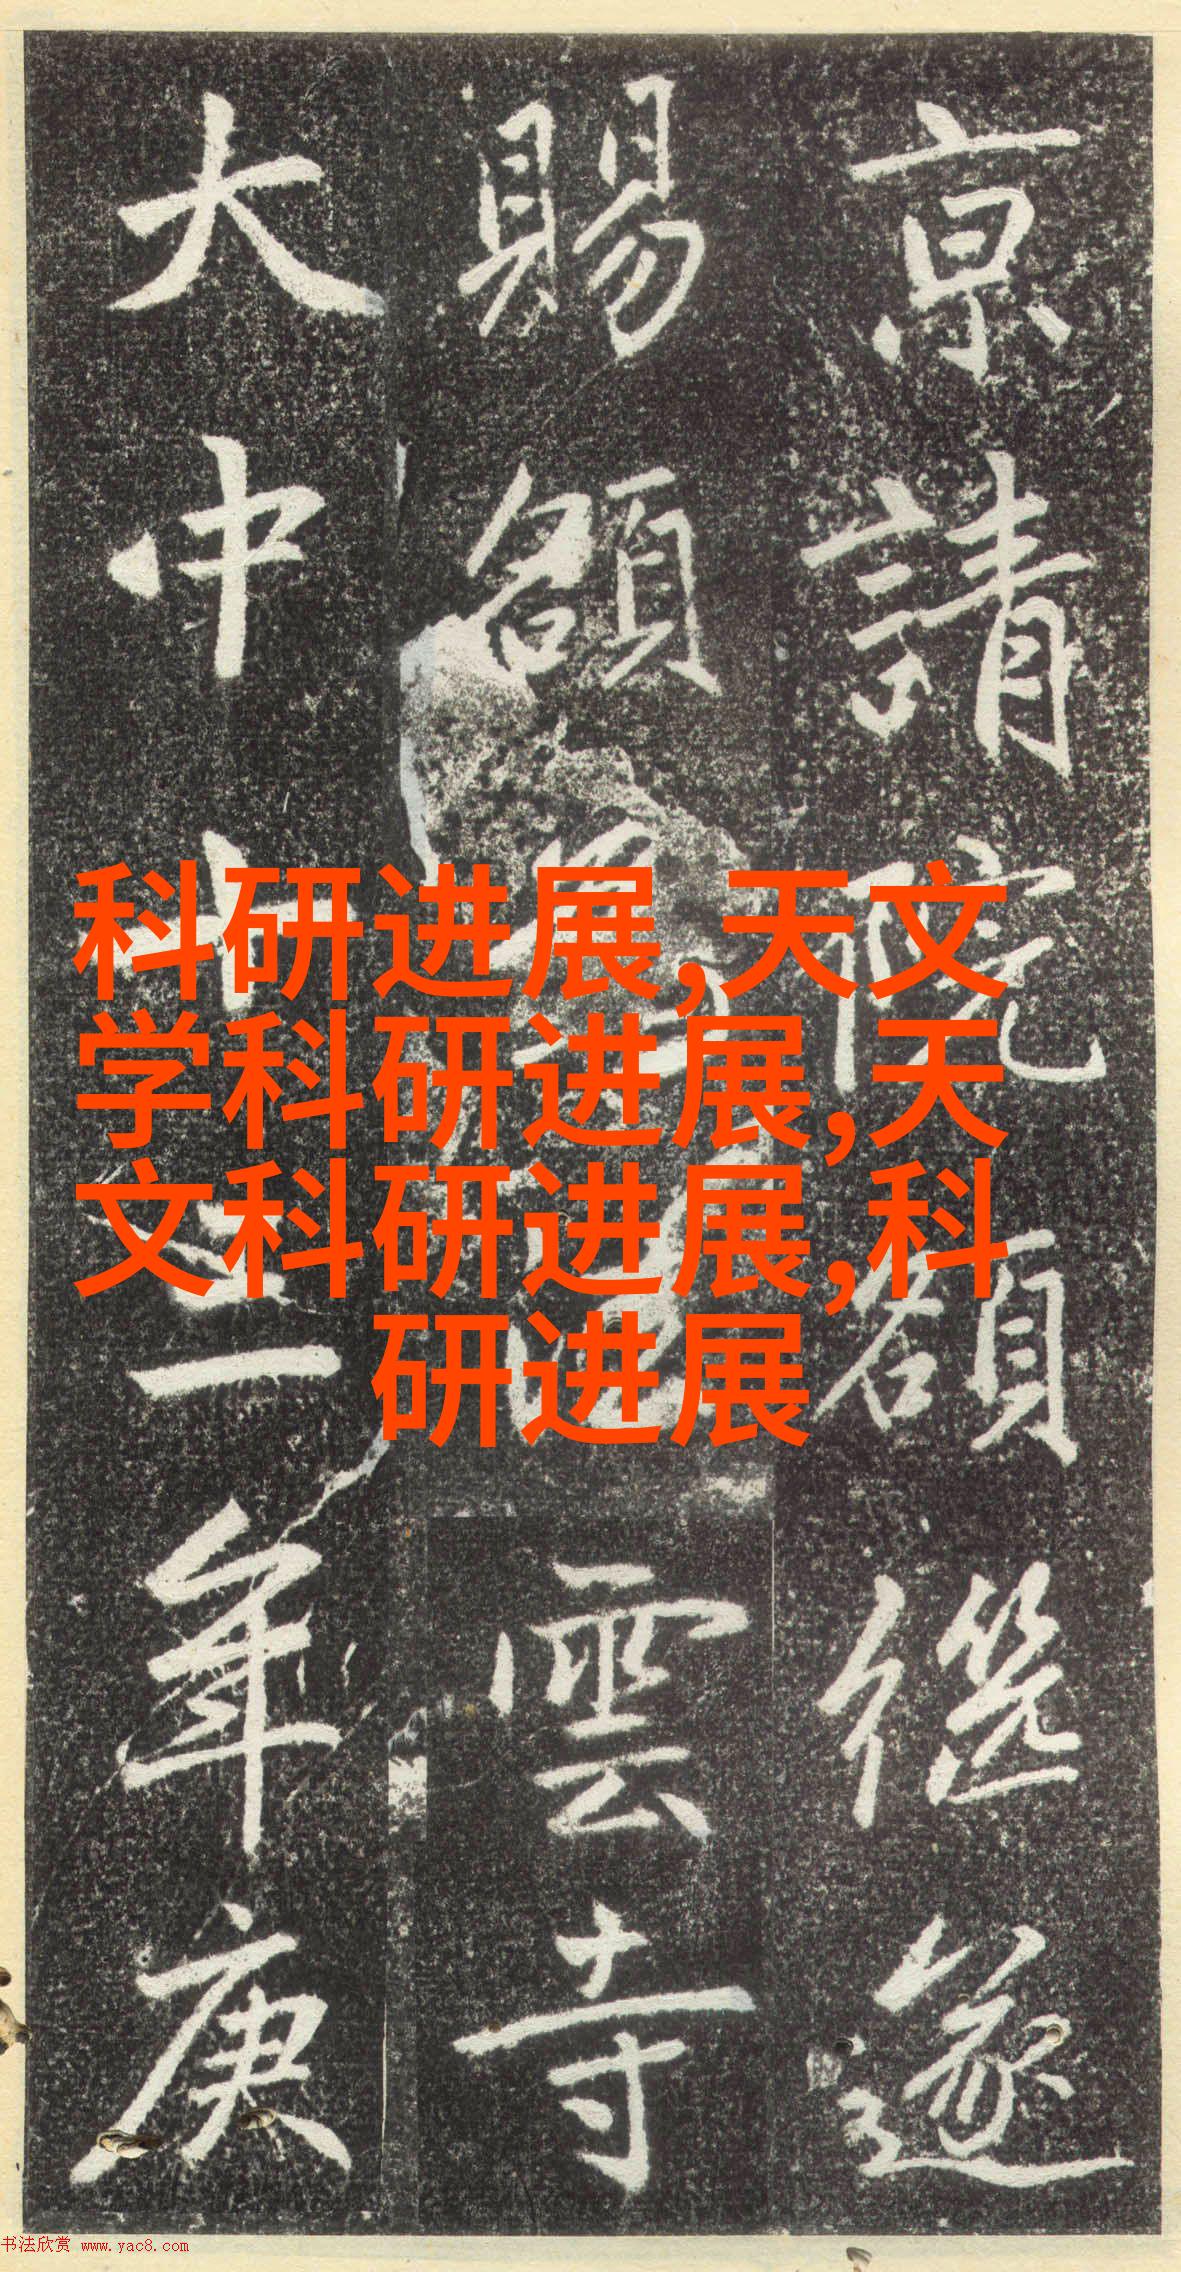 京請院額遂
賜額雲寺
大中十三年庚
科研进展,天文
学科研进展,天
文科研进展,科
研进展
书法欣赏 www.yac8.com